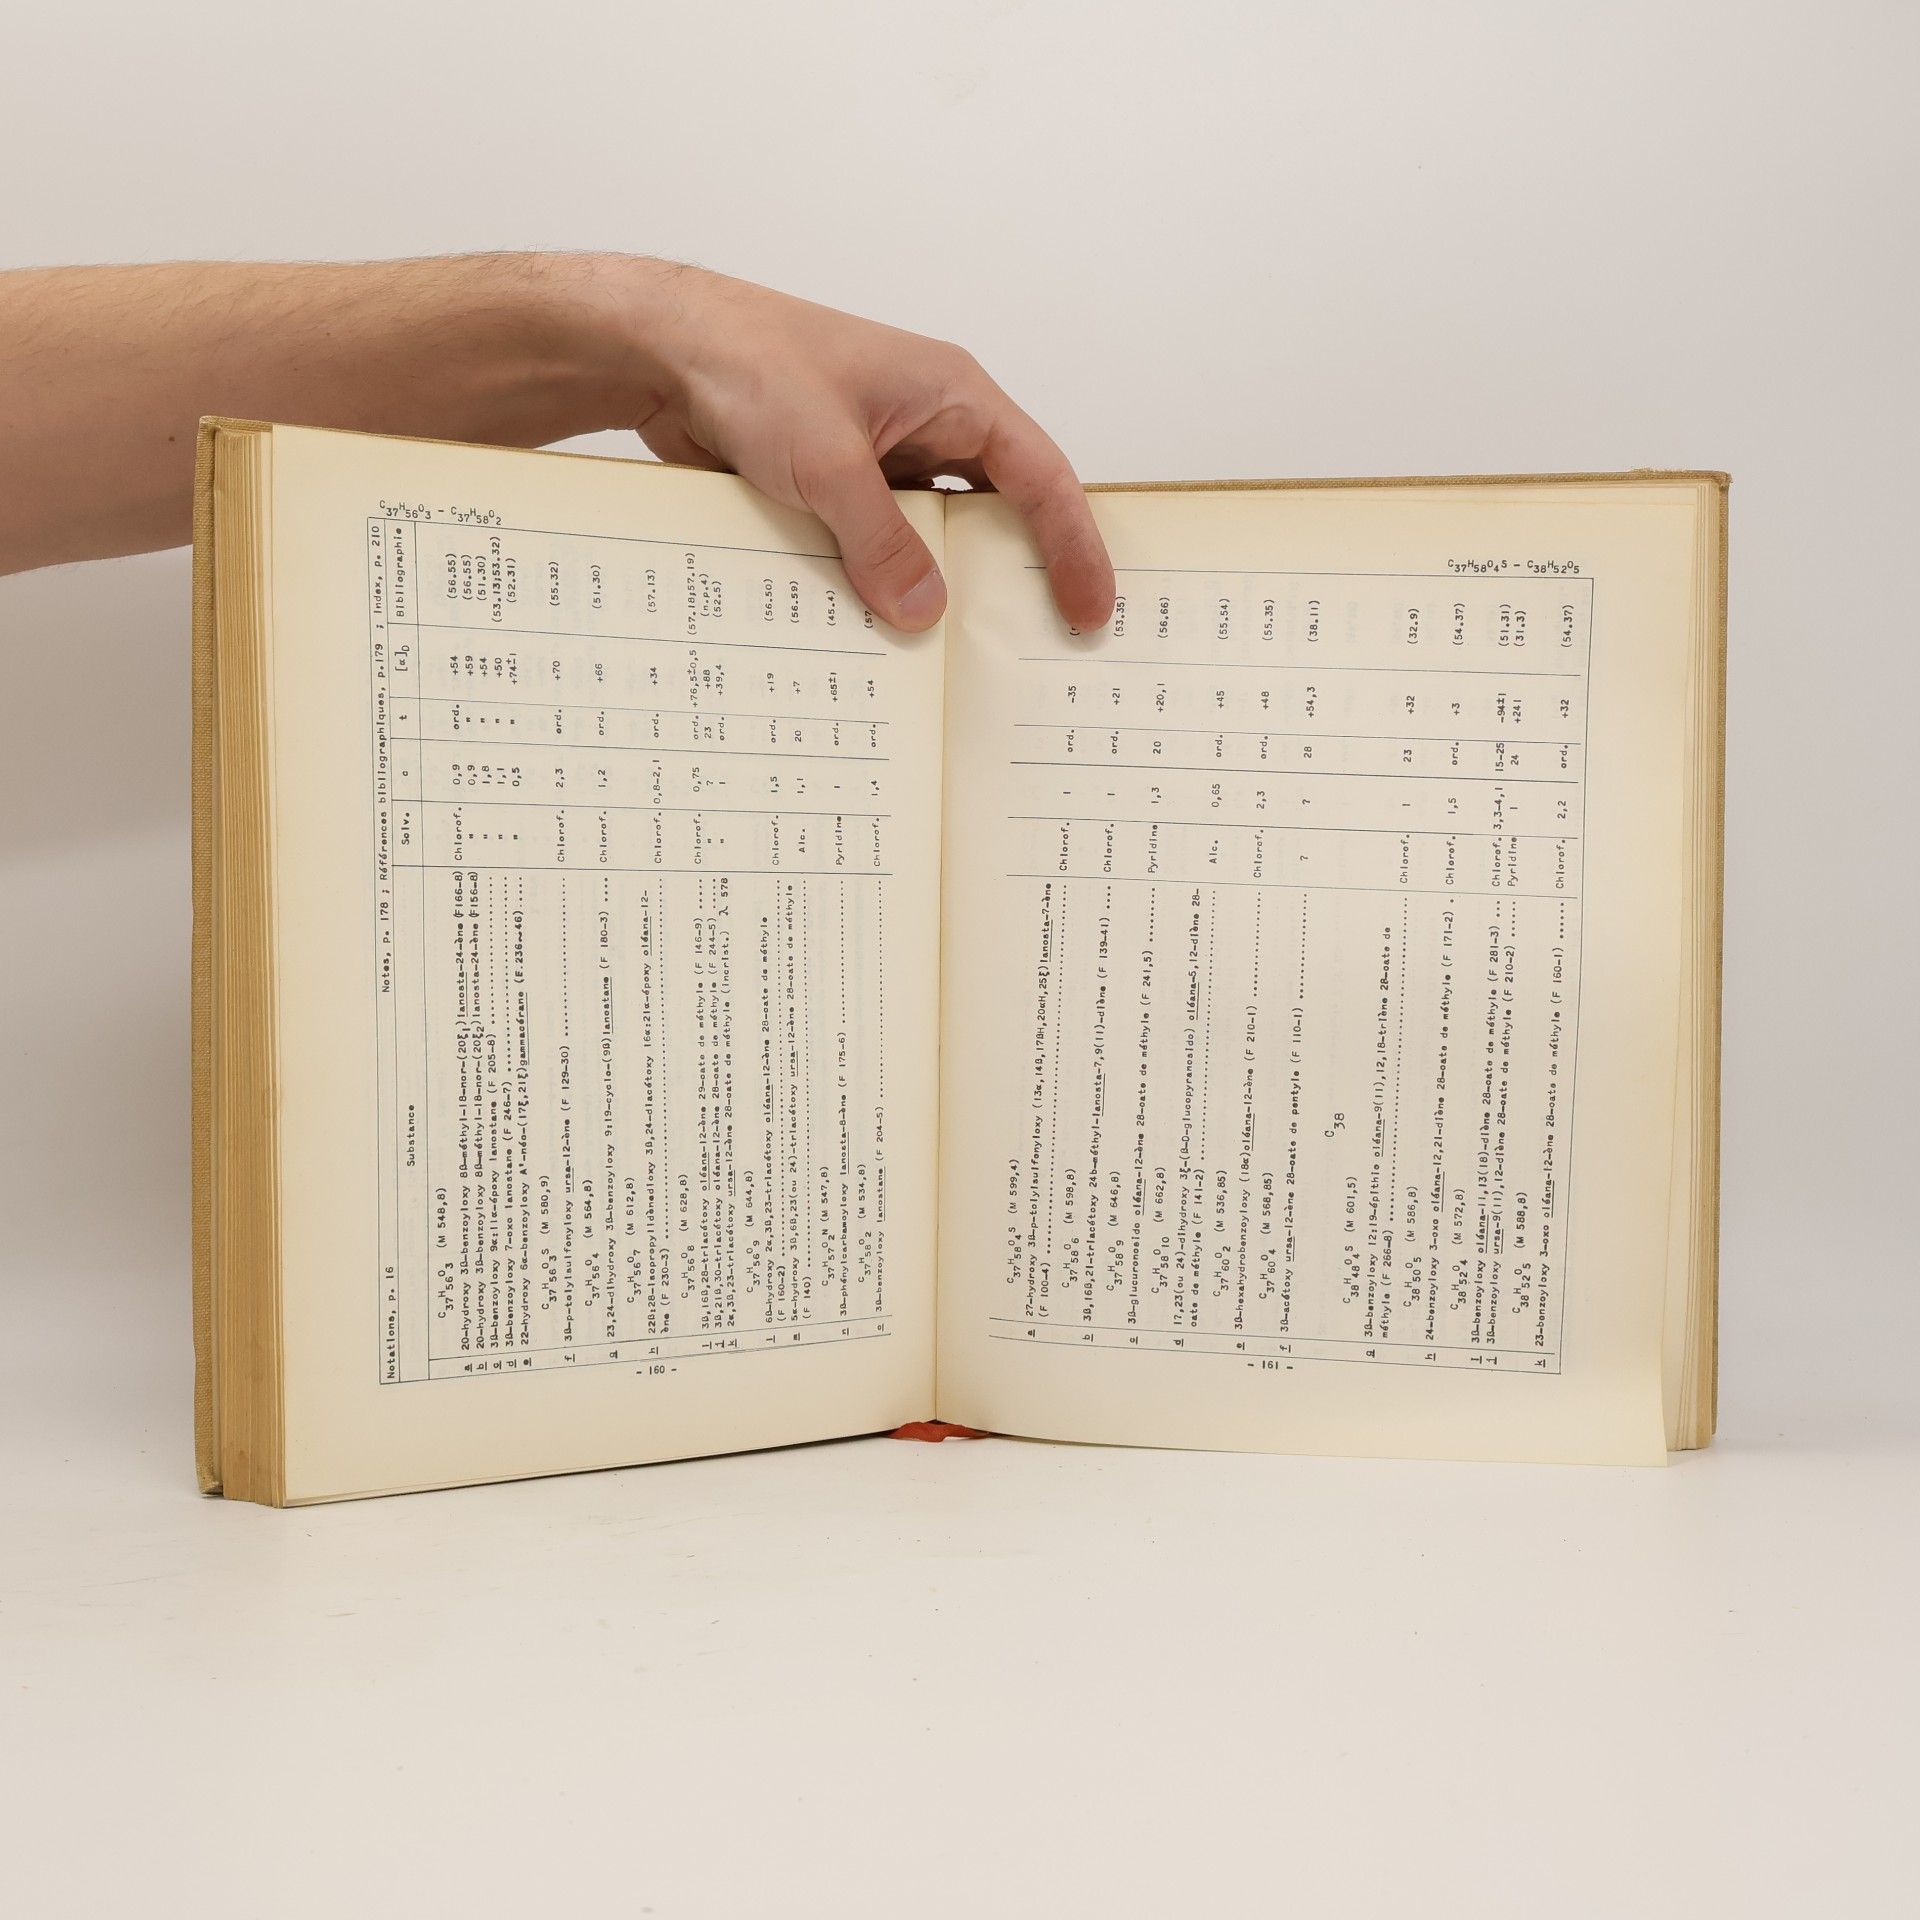 C37H56O3 - C37H58O2
Notations, p. 16 Notes, p. 178 ; Références bibliographiques, p.179 ; Index, p. 210
Substance Solv. c t [α]D Bibliographie
C37H56O3 (M 548,8)
a 20-hydroxy 3ß-benzoyloxy 8ß-méthyl-18-nor-(20ξ1)lanosta-24-ène (F166-8) Chlorof. 0,9 ord. +54 (56.55)
b 20-hydroxy 3ß-benzoyloxy 8ß-méthyl-18-nor-(20ξ2)lanosta-24-ène (F156-8) " 0,9 " +59 (56.55)
c 3ß-benzoyloxy 9α:11α-époxy lanostane (F 205-8) " 1,8 " +54 (51.30)
d 3ß-benzoyloxy 7-oxo lanostane (F 246-7) " 1,1 " +50 (53.13;53.32)
e 22-hydroxy 6α-benzoyloxy A'-néo-(17ξ,21ξ)gammacérane (F.236~46) " 0,5 " +74±1 (52.31)
C37H56O3S (M 580,9)
f 3ß-p-tolylsulfonyloxy ursa-12-ène (F 129-30) Chlorof. 2,3 ord. +70 (55.32)
C37H56O4 (M 564,8)
g 23,24-dihydroxy 3ß-benzoyloxy 9:19-cyclo-(9ß)lanostane (F 180-3) Chlorof. 1,2 ord. +66 (51.30)
C37H56O7 (M 612,8)
h 22ß:28-isopropylidènedioxy 3ß,24-diacétoxy 16α:21α-époxy oléana-12-
ène (F 230-3) Chlorof. 0,8-2,1 ord. +34 (57.13)
C37H56O8 (M 628,8)
i 3ß,16ß,28-triacétoxy oléana-12-ène 29-oate de méthyle (F 146-9) Chlorof. 0,75 ord. +76,5±0,5 (57.18;57.19)
j 3ß,21ß,30-triacétoxy oléana-12-ène 28-oate de méthyle (F 244-5) " ? 23 +88 (n.p.4)
k 2α,3ß,23-triacétoxy ursa-12-ène 28-oate de méthyle (incrist.) λ 578 " 1 ord. +39,4 (52.5)
C37H56O9 (M 644,8)
l 6ß-hydroxy 2α,3ß,23-triacétoxy oléana-12-ène 28-oate de méthyle
(F 160-2) Chlorof. 1,5 ord. +19 (56.50)
m 5α-hydroxy 3ß,6ß,23(ou 24)-triacétoxy ursa-12-ène 28-oate de méthyle
(F 140) Alc. 1,1 20 +7 (56.59)
C37H57O2N (M 547,8)
n 3ß-phénylcarbamoyloxy lanosta-8-ène (F 175-6) Pyridine 1 ord. +65±1 (45.4)
C37H58O2 (M 534,8)
o 3ß-benzoyloxy lanostane (F 204-5) Chlorof. 1,4 ord. +54 (57
- 160 -
C37H58O4S - C38H52O5
C37H58O4S (M 599,4)
a 27-hydroxy 3ß-p-tolylsulfonyloxy (13α,14ß,17ßH,20αH,25ξ)lanosta-7-ène
(F 100-4) Chlorof. 1 ord. -35
C37H58O6 (M 598,8)
b 3ß,16ß,21-triacétoxy 24b-méthyl-lanosta-7,9(11)-diène (F 139-41) Chlorof. 1 ord. +21 (53.35)
C37H58O9 (M 646,8)
c 3ß-glucuronosido oléana-12-ène 28-oate de méthyle (F 241,5) Pyridine 1,3 20 +20,1 (56.66)
C37H58O10 (M 662,8)
d 17,23(ou 24)-dihydroxy 3ξ-(ß-D-glucopyranosido) oléana-5,12-diène 28-
oate de méthyle (F 141-2) Alc. 0,65 ord. +45 (55.54)
C37H60O2 (M 536,85)
e 3ß-hexahydrobenzoyloxy (18α)oléana-12-ène (F 210-1) Chlorof. 2,3 ord. +48 (55.35)
C37H60O4 (M 568,85)
f 3ß-acétoxy ursa-12-ène 28-oate de pentyle (F 110-1) ? ? 28 +54,3 (38.11)
C38
C38H48O4S (M 601,5)
g 3ß-benzoyloxy 12:19-épithio oléana-9(11),12,18-triène 28-oate de
méthyle (F 266-8) Chlorof. 1 23 +32 (32.9)
C38H50O5 (M 586,8)
h 24-benzoyloxy 3-oxo oléana-12,21-diène 28-oate de méthyle (F 171-2) Chlorof. 1,5 ord. +3 (54.37)
C38H52O4 (M 572,8)
i 3ß-benzoyloxy oléana-11,13(18)-diène 28-oate de méthyle (F 281-3) Chlorof. 3,3-4,1 15-25 -94±1 (51.31)
j 3ß-benzoyloxy ursa-9(11),12-diène 28-oate de méthyle (F 210-2) Pyridine 1 24 +241 (31.31)
C38H52O5 (M 588,8)
k 23-benzoyloxy 3-oxo oléana-12-ène 28-oate de méthyle (F 160-1) Chlorof. 2,2 ord. +32 (54.37)
- 161 -